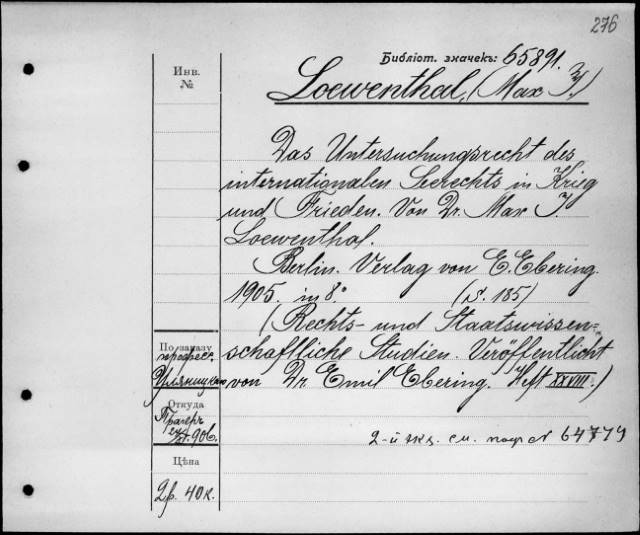 276
Библіот. значекъ: 65891.
Инв.
№
Loewenthal, (Max J.)
Das Untersuchungsrecht des
internationalen Seerechts in Krieg
und Frieden. Von Dr. Max J.
Loewenthal.
Berlin. Verlag von E. Ebering.
1905. in 8°. (S. 185)
(Rechts- und Staatswissen-
schaftliche Studien. Veröffentlicht
von Dr. Emil Ebering. Heft XXVIII.)
По заказу
професс.
Откуда
906.
2-й экз. см. под № 64779
Цѣна
2р. 40к.